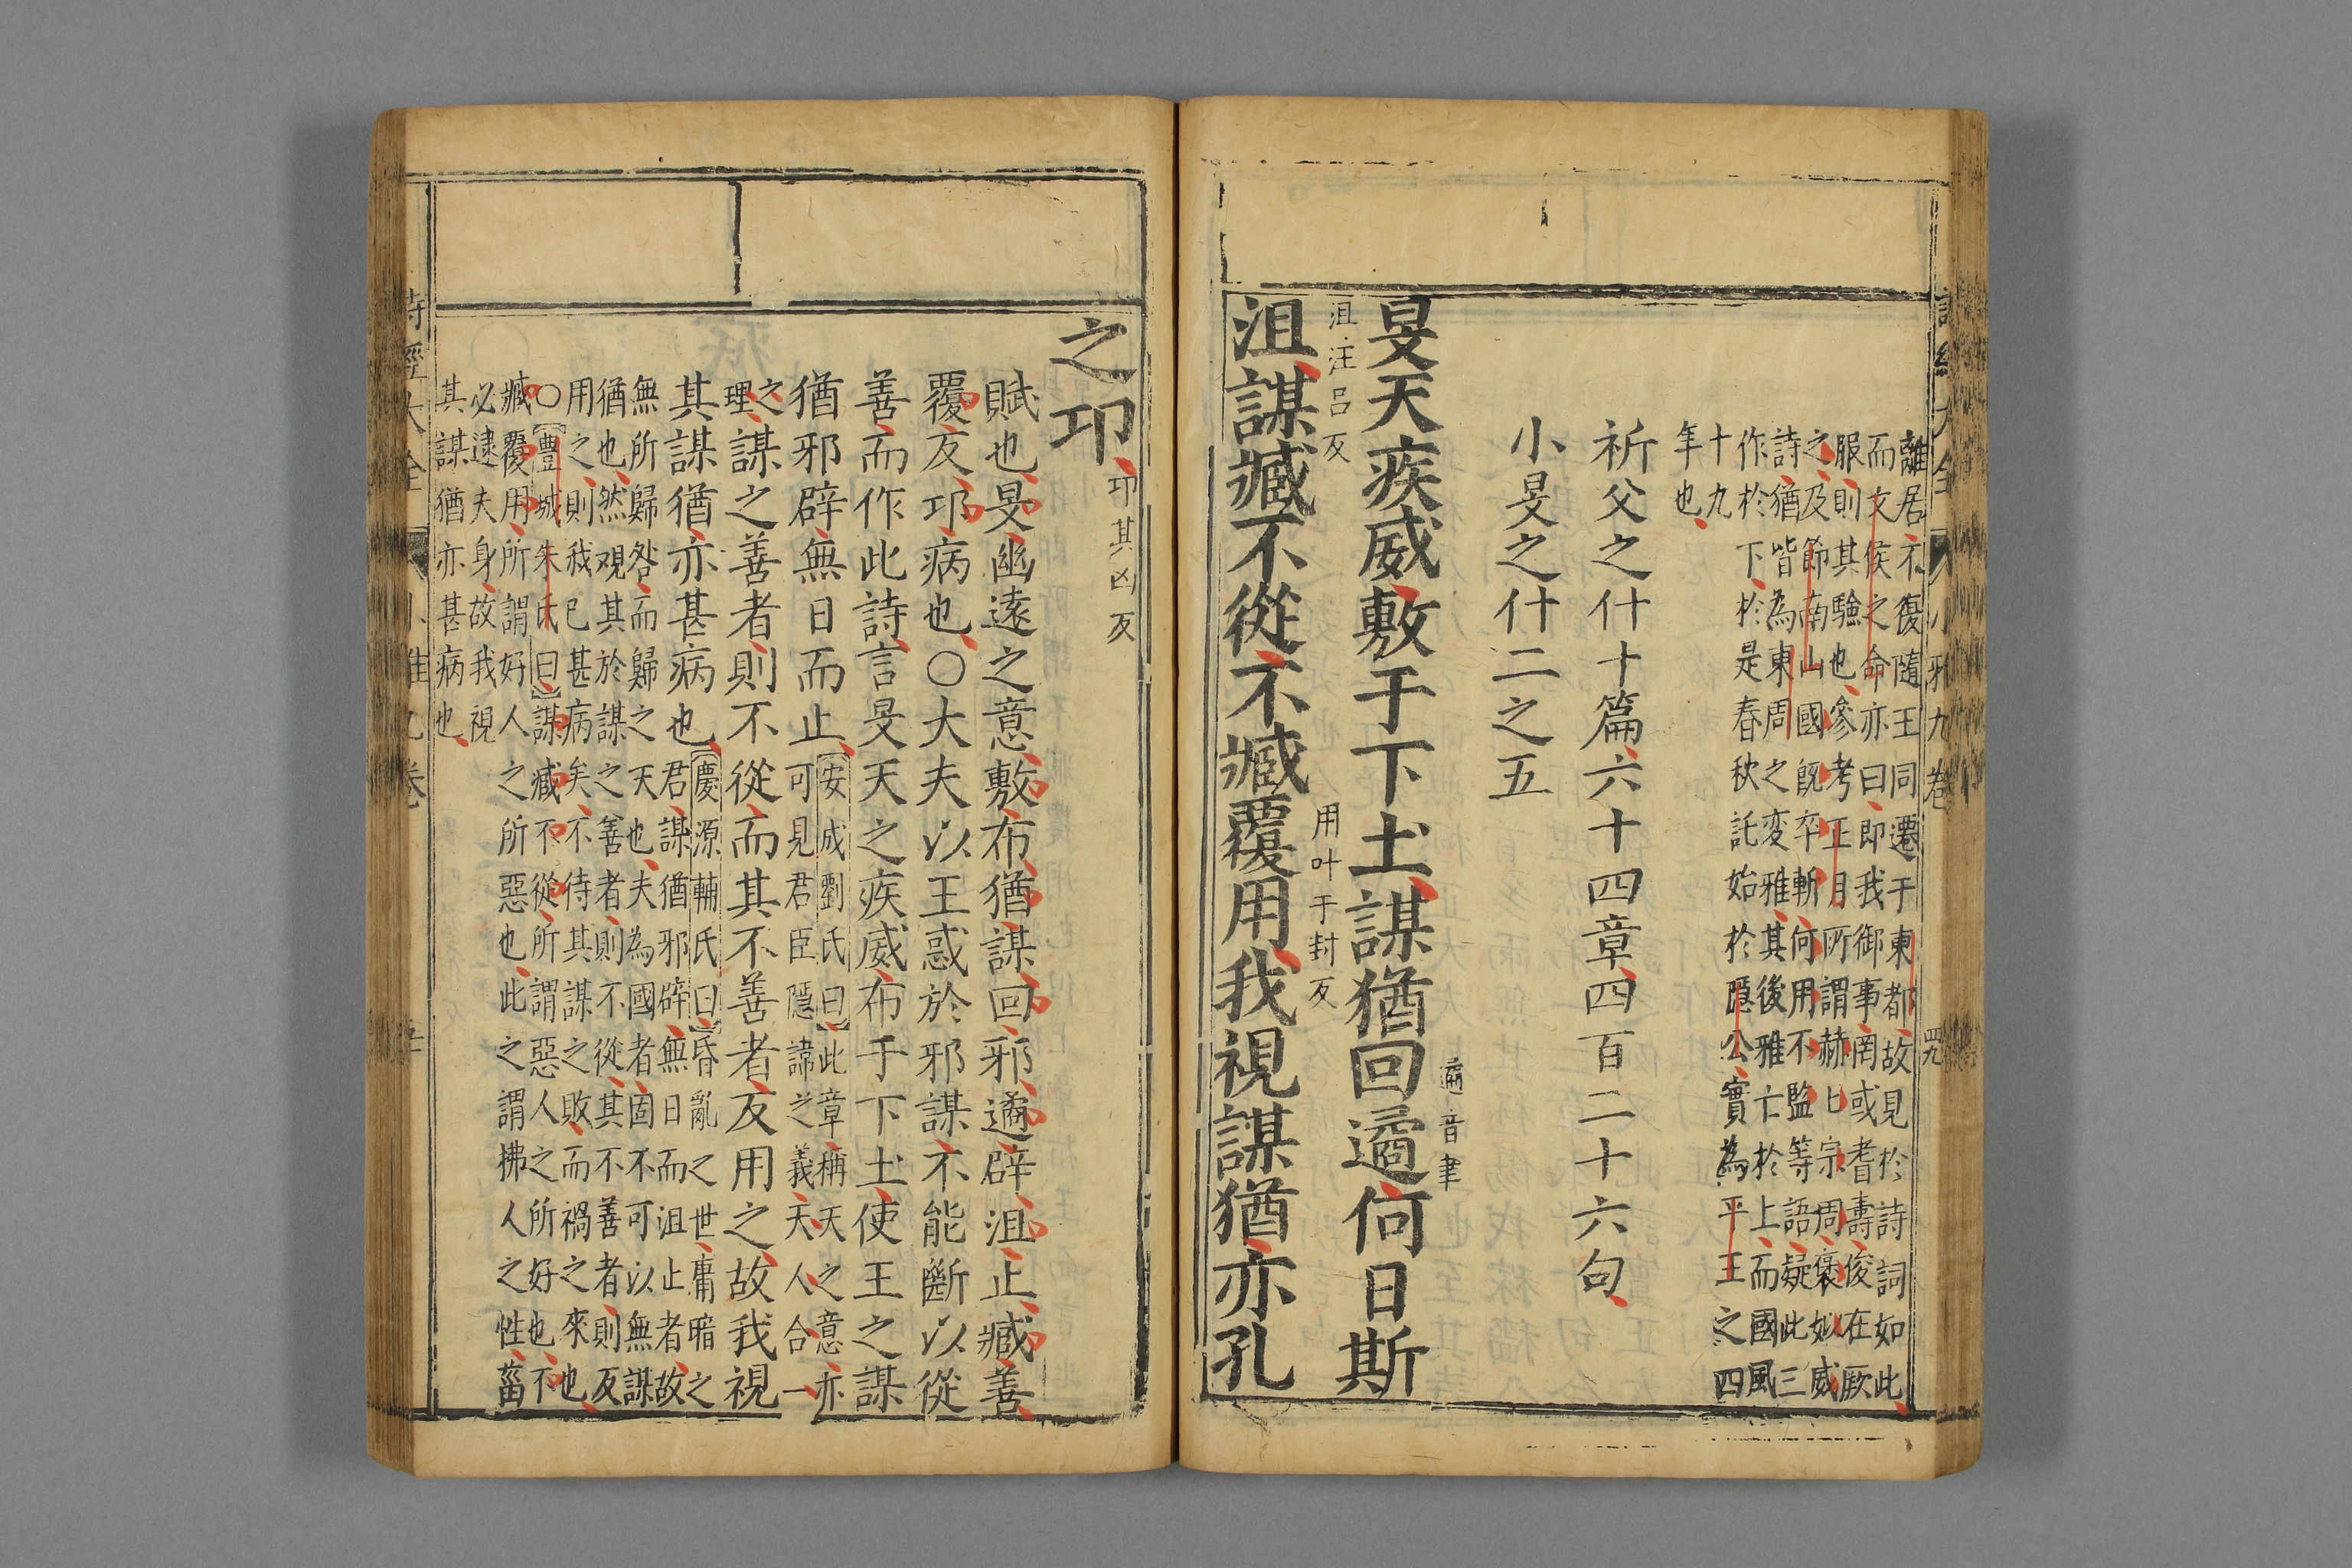 離居不復隨王同遷于東都故見於詩詞如此
而文侯之命亦曰即我御事罔或耆壽俊在厥
服則其驗也參考正月所謂赫赫宗周褒姒威
之及節南山國旣卒斬何用不監等語疑此三
詩猶皆為東周之変雅其後雅亡於上而國風
作於下於是春秋託始於隱公實為平王之四
十九
年也
祈父之什十篇六十四章四百二十六句
小旻之什二之五
旻天疾威敷于下土謀猶回遹何日斯
遹音聿
沮謀臧不從不臧覆用我視謀猶亦孔
沮汪呂反
用叶于封反
之卭
卭其凶反
賦也旻幽遠之意敷布猶謀回邪遹辟沮止臧善
覆反卭病也○大夫以王惑於邪謀不能斷以從
善而作此詩言旻天之疾威布于下土使王之謀
猶邪辟無日而止
安成劉氏曰此章稱天之意亦
可見君臣隱諱之義天人合一
之
理
謀之善者則不從而其不善者反用之故我視
其謀猶亦甚病也
慶源輔氏曰昏亂之世庸暗之
君謀猶邪辟無日而沮止者故
無所歸咎而歸之天也夫為國者固不可以無謀
猶也然观其於謀之善者則不從其不善者則反
用之則我已甚病矣不待其謀之敗而禍之來也
○豐城朱氏曰謀臧不從所謂惡人之所好也不
臧覆用所謂好人之所惡也此之謂拂人之性菑
必逮夫身故我視
其謀猶亦甚病也
小雅九卷
四九